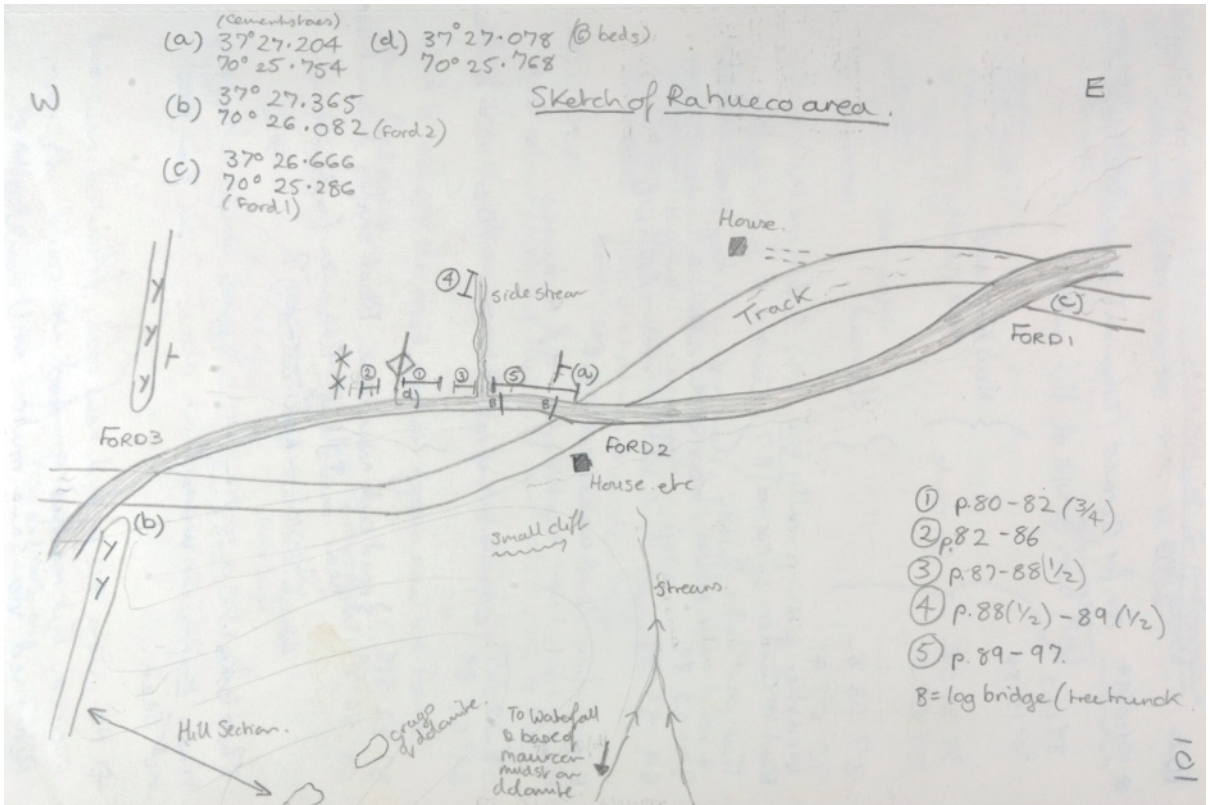 (Cementstones)
(a) 37° 27.204
70° 25.754
(d) 37° 27.078 (6 beds)
70° 25.768
W
(b) 37° 27.365
70° 26.082 (Ford 2)
Sketch of Rahueco area.
E
(c) 37° 26.666
70° 25.286
(Ford 1)
House.
④
side stream
Track
(c)
FORD 1
Y
Y
Y
②
①
③
⑤
(a)
d)
B
B
FORD 3
FORD 2
House etc
(b)
Y
Y
small cliff
streams
① p.80-82 (3/4)
② p.82-86
③ p.87-88 (1/2)
④ p.88(1/2) - 89 (1/2)
⑤ p.89-97.
B = log bridge (treetrunck
Hill Section.
crags
of dolomite.
To Waterfall
& base of
mudst on
dolomite.
101